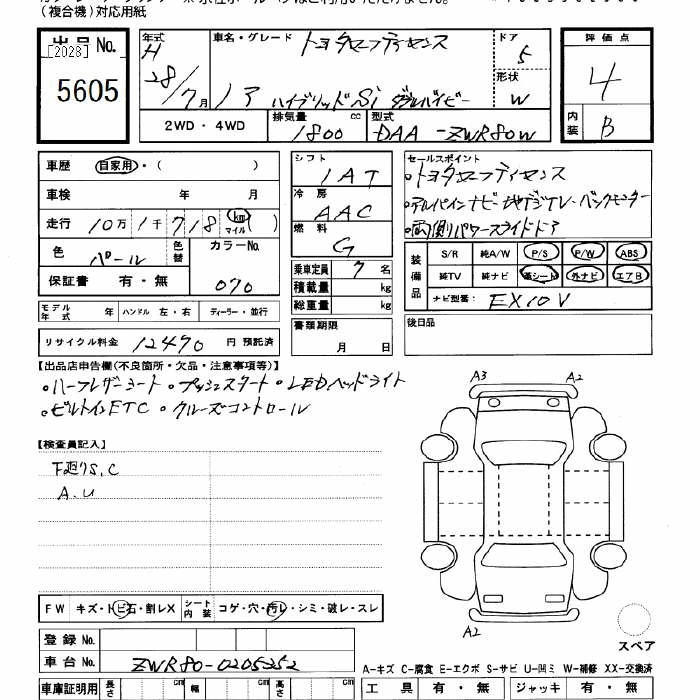 (複合機)対応用紙
出品 No.
[2028]
5605
年式 H 28/7月
車名・グレード トヨタエスティマ
ノア ハイブリッドSi ダブルバイビー
ドア 5
形状 W
評価点 4
内装 B
2WD ・ 4WD
排気量 1800 cc
型式 DAA-ZWR80W
車歴 自家用 ・ ( )
車検 年 月
走行 10万 1千 718 km マイル ( )
色 パール 色替 カラーNo. 070
保証書 有 ・ 無
シフト IAT
冷房 AAC
燃料 G
乗車定員 7 名
積載量 kg
総重量 kg
セールスポイント
・アルパインナビ・地デジTV・バックモニター
・両側パワースライドドア
装備品
S/R 純A/W P/S P/W ABS
純TV 純ナビ 革シート 外ナビ エアB
ナビ型番: EX10V
モデル年式 年 ハンドル 左・右 ディーラー・並行
書類期限 月 日
後日品
リサイクル料金 12490 円 預託済
【出品店申告欄(不良箇所・欠品・注意事項等)】
・ハーフレザーシート ・プッシュスタート ・LEDヘッドライト
・ビルトインETC ・クルーズコントロール
【検査員記入】
下廻りS.C
A.U
A3 A2
A2
スペア
FW キズ・トビ石・割レX シート内装 コゲ・穴・汚レ・シミ・破レ・スレ
登録 No.
車台 No. ZWR80-0205252
A-キズ C-腐食 E-エクボ S-サビ U-凹ミ W-補修 XX-交換済
車庫証明用 長さ cm 幅 cm 高さ cm
工具 有 ・ 無 ジャッキ 有 ・ 無